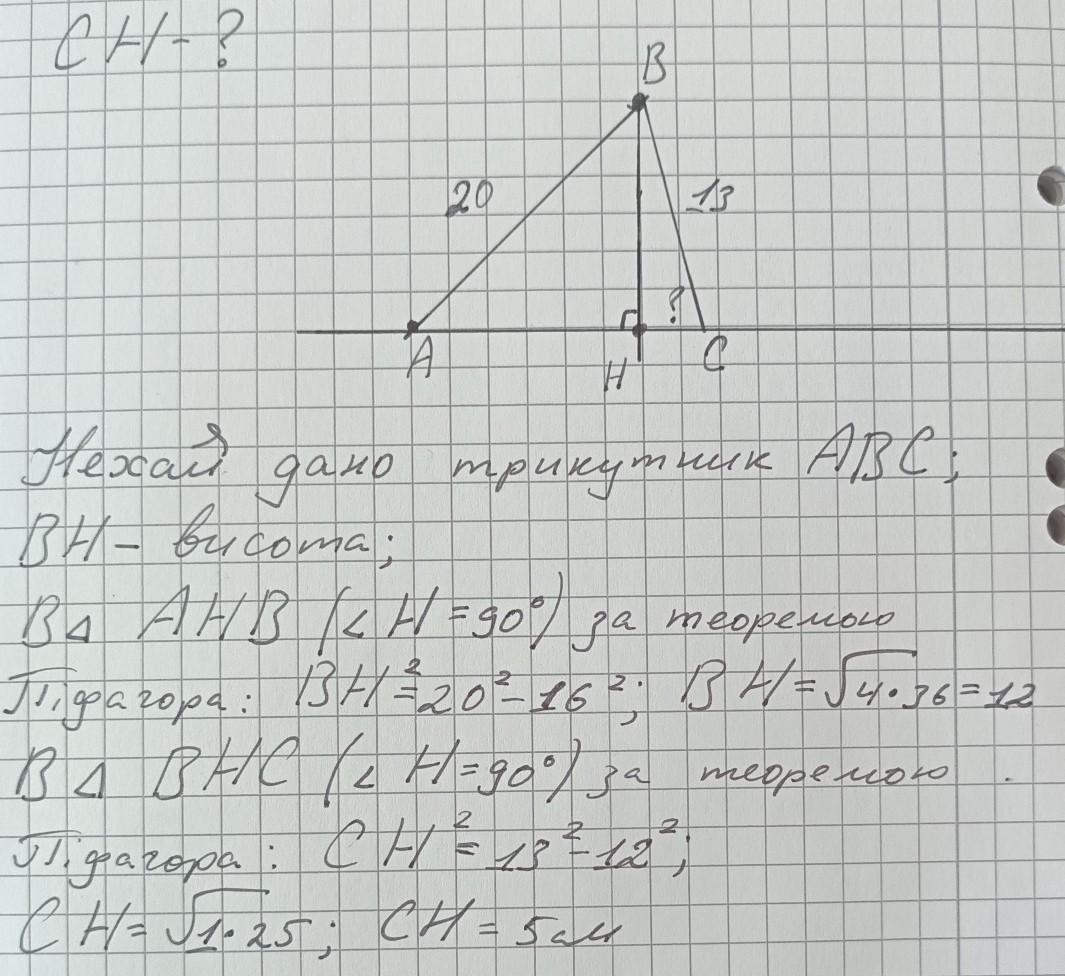 CH-?
B
20
13
?
A
H
C
Нехай дано трикутник ABC;
BH - висота;
В Δ AHB (∠ H = 90°) за теоремою
Піфагора: BH² = 20² - 16²; BH = √4·36 = 12
В Δ BHC (∠ H = 90°) за теоремою .
Піфагора: CH² = 13² - 12²;
CH = √1·25; CH = 5см